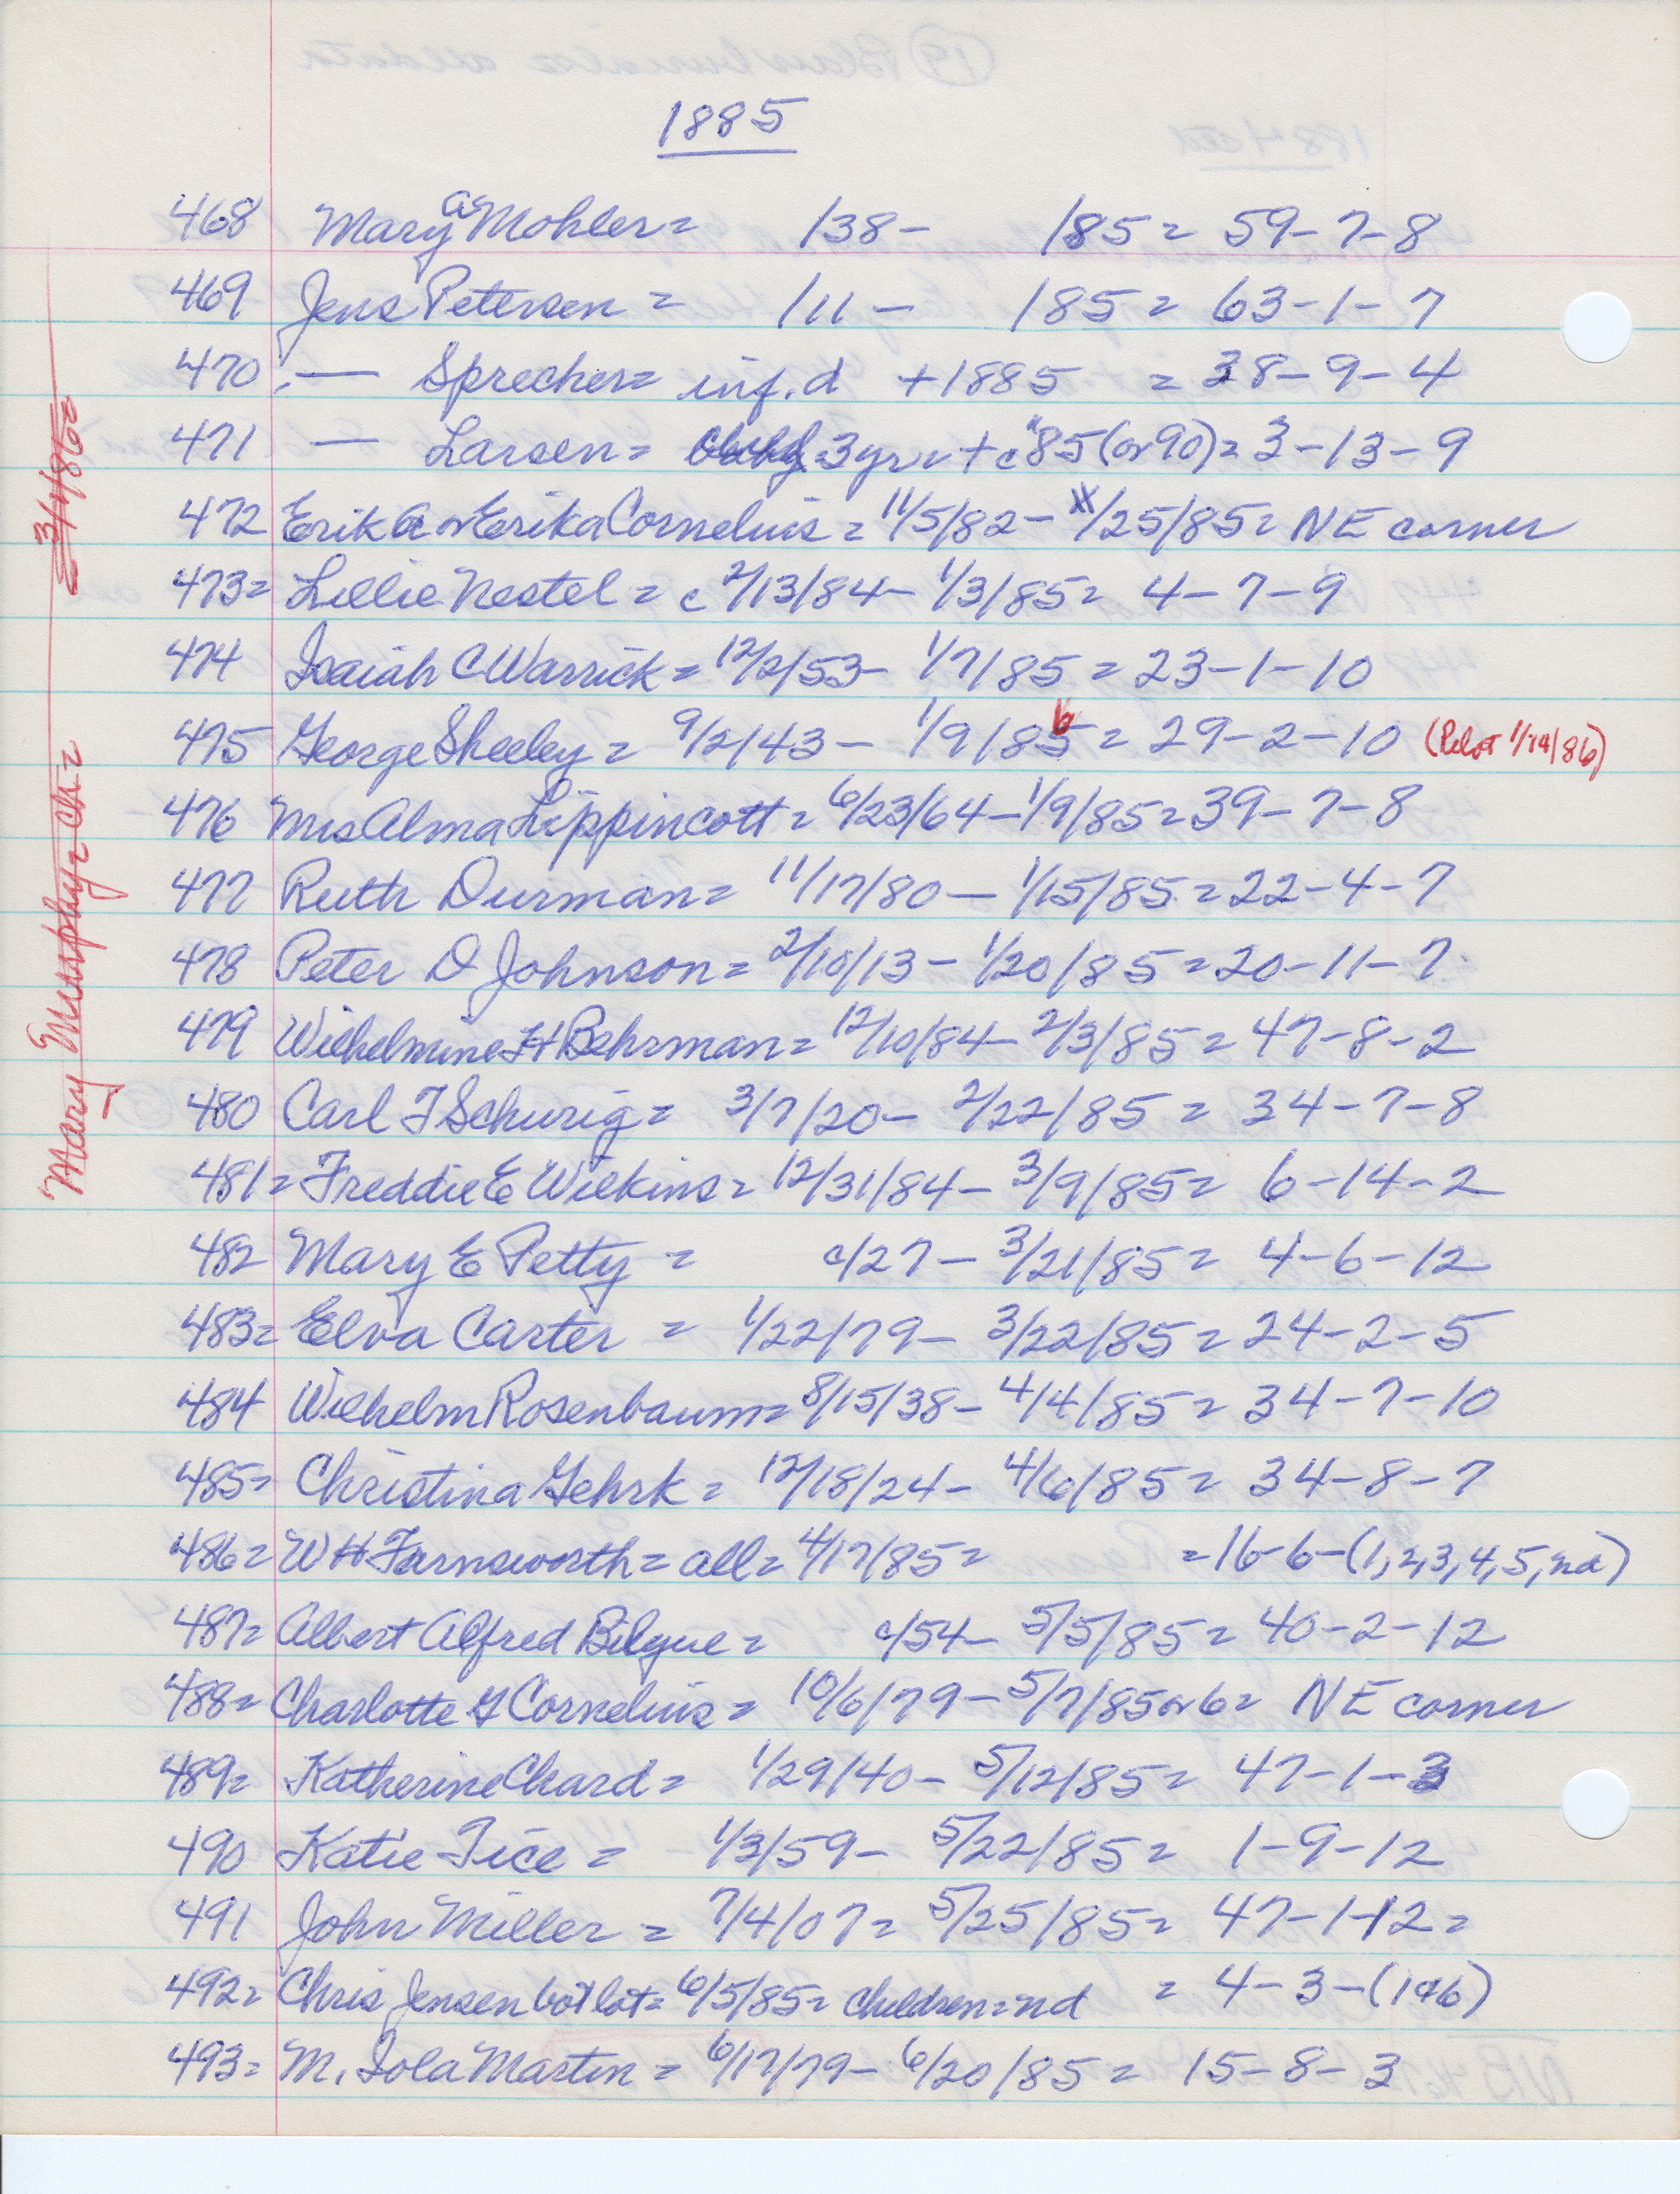 1885
468 Mary a Mohler = /38 - /85 = 59-7-8
469 Jens Petersen = /11 - /85 = 63-1-7
470 — Sprecher = inf. d +1885 = 38-9-4
471 — Larsen = 3 yr = + c "85 (or 90) = 3-13-9
472 Erik G or Erika Cornelius = 11/5/82 - /25/85 = NE corner
473 = Lillie Nestel = c 2/13/84 - 1/3/85 = 4-7-9
474 Isaiah C Warrick = 12/2/53 - 1/7/85 = 23-1-10
475 George Sheeley = 9/2/43 - 1/9/85 6 = 29-2-10 (Pilot 1/14/86)
476 Mrs Alma Lippincott = 6/23/64 - 1/9/85 = 39-7-8
477 Ruth Durman = 11/17/80 — 1/15/85 = 22-4-7
478 Peter D Johnson = 2/10/13 - 1/20/85 = 20-11-7
479 Wilhelmine H Behrman = 12/10/84 - 2/3/85 = 47-8-2
480 Carl F Schurig = 3/7/20 - 2/22/85 = 34-7-8
481 = Freddie E Wilkins = 12/31/84 - 3/9/85 = 6-14-2
482 Mary E Petty = c/27 - 3/21/85 = 4-6-12
483 = Elva Carter = 1/22/79 - 3/22/85 = 24-2-5
484 Wilhelm Rosenbaum = 8/15/38 - 4/4/85 = 34-7-10
485 = Christina Gehrk = 12/18/24 - 4/6/85 = 34-8-7
486 = W H Farnsworth = all = 4/17/85 = = 16-6-(1,2,3,4,5, nd)
487 = Albert Alfred Bilgue = c/54 - 5/5/85 = 40-2-12
488 = Charlotte G Cornelius = 10/6/79 - 5/7/85 or 6 = NE corner
489 = Katherine Chard = 1/29/40 - 5/12/85 = 47-1-3
490 Katie Tice = 1/3/59 - 5/22/85 = 1-9-12
491 John Miller = 7/4/07 = 5/25/85 = 47-1-12 =
492 = Chris Jensen bot lot = 6/5/85 = children = nd = 4-3-(1+6)
493 = M. Iola Martin = 6/17/79 - 6/20/85 = 15-8-3
Mary Murphy = ch = 3/4/86 =